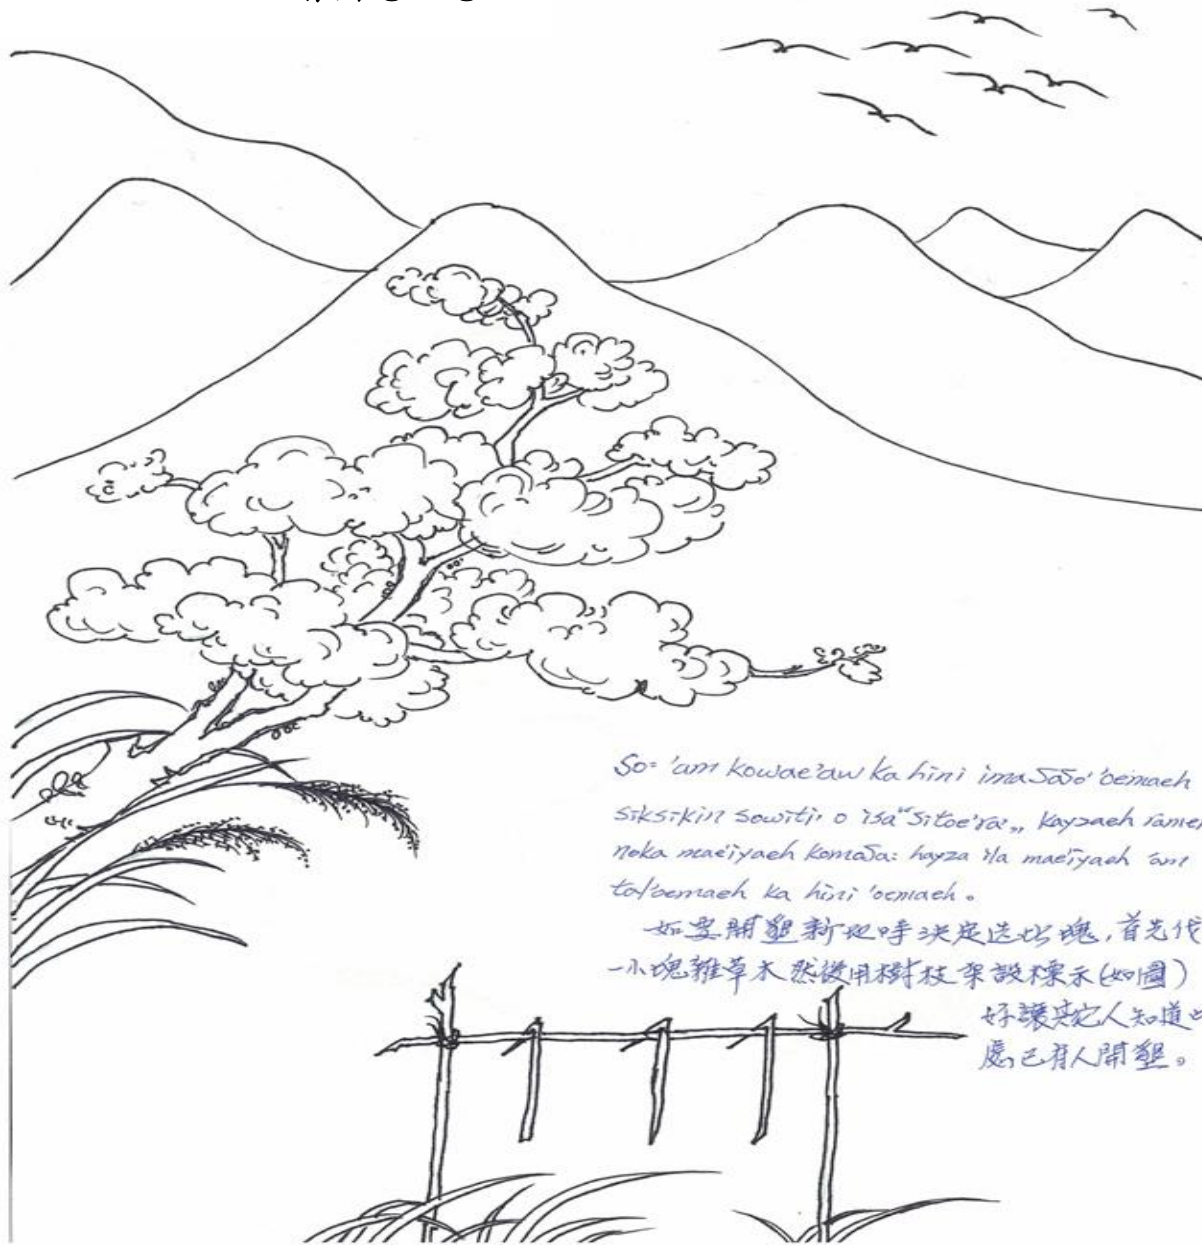 So: 'am kowae'aw ka hini ima SaSo' 'oemaeh
siksikin sowiti' o isa "Sitoe'ra:" kayzaeh ramer
noka mae'iyaeh komoSa: hayza ila mae'iyaeh 'am
tal'oemaeh ka hini 'oemaeh。
如要開墾新地時決定选此塊,首先伐
一小塊雜草木然後用樹枝架設標示(如圖)
好讓其它人知道此
處已有人開墾。